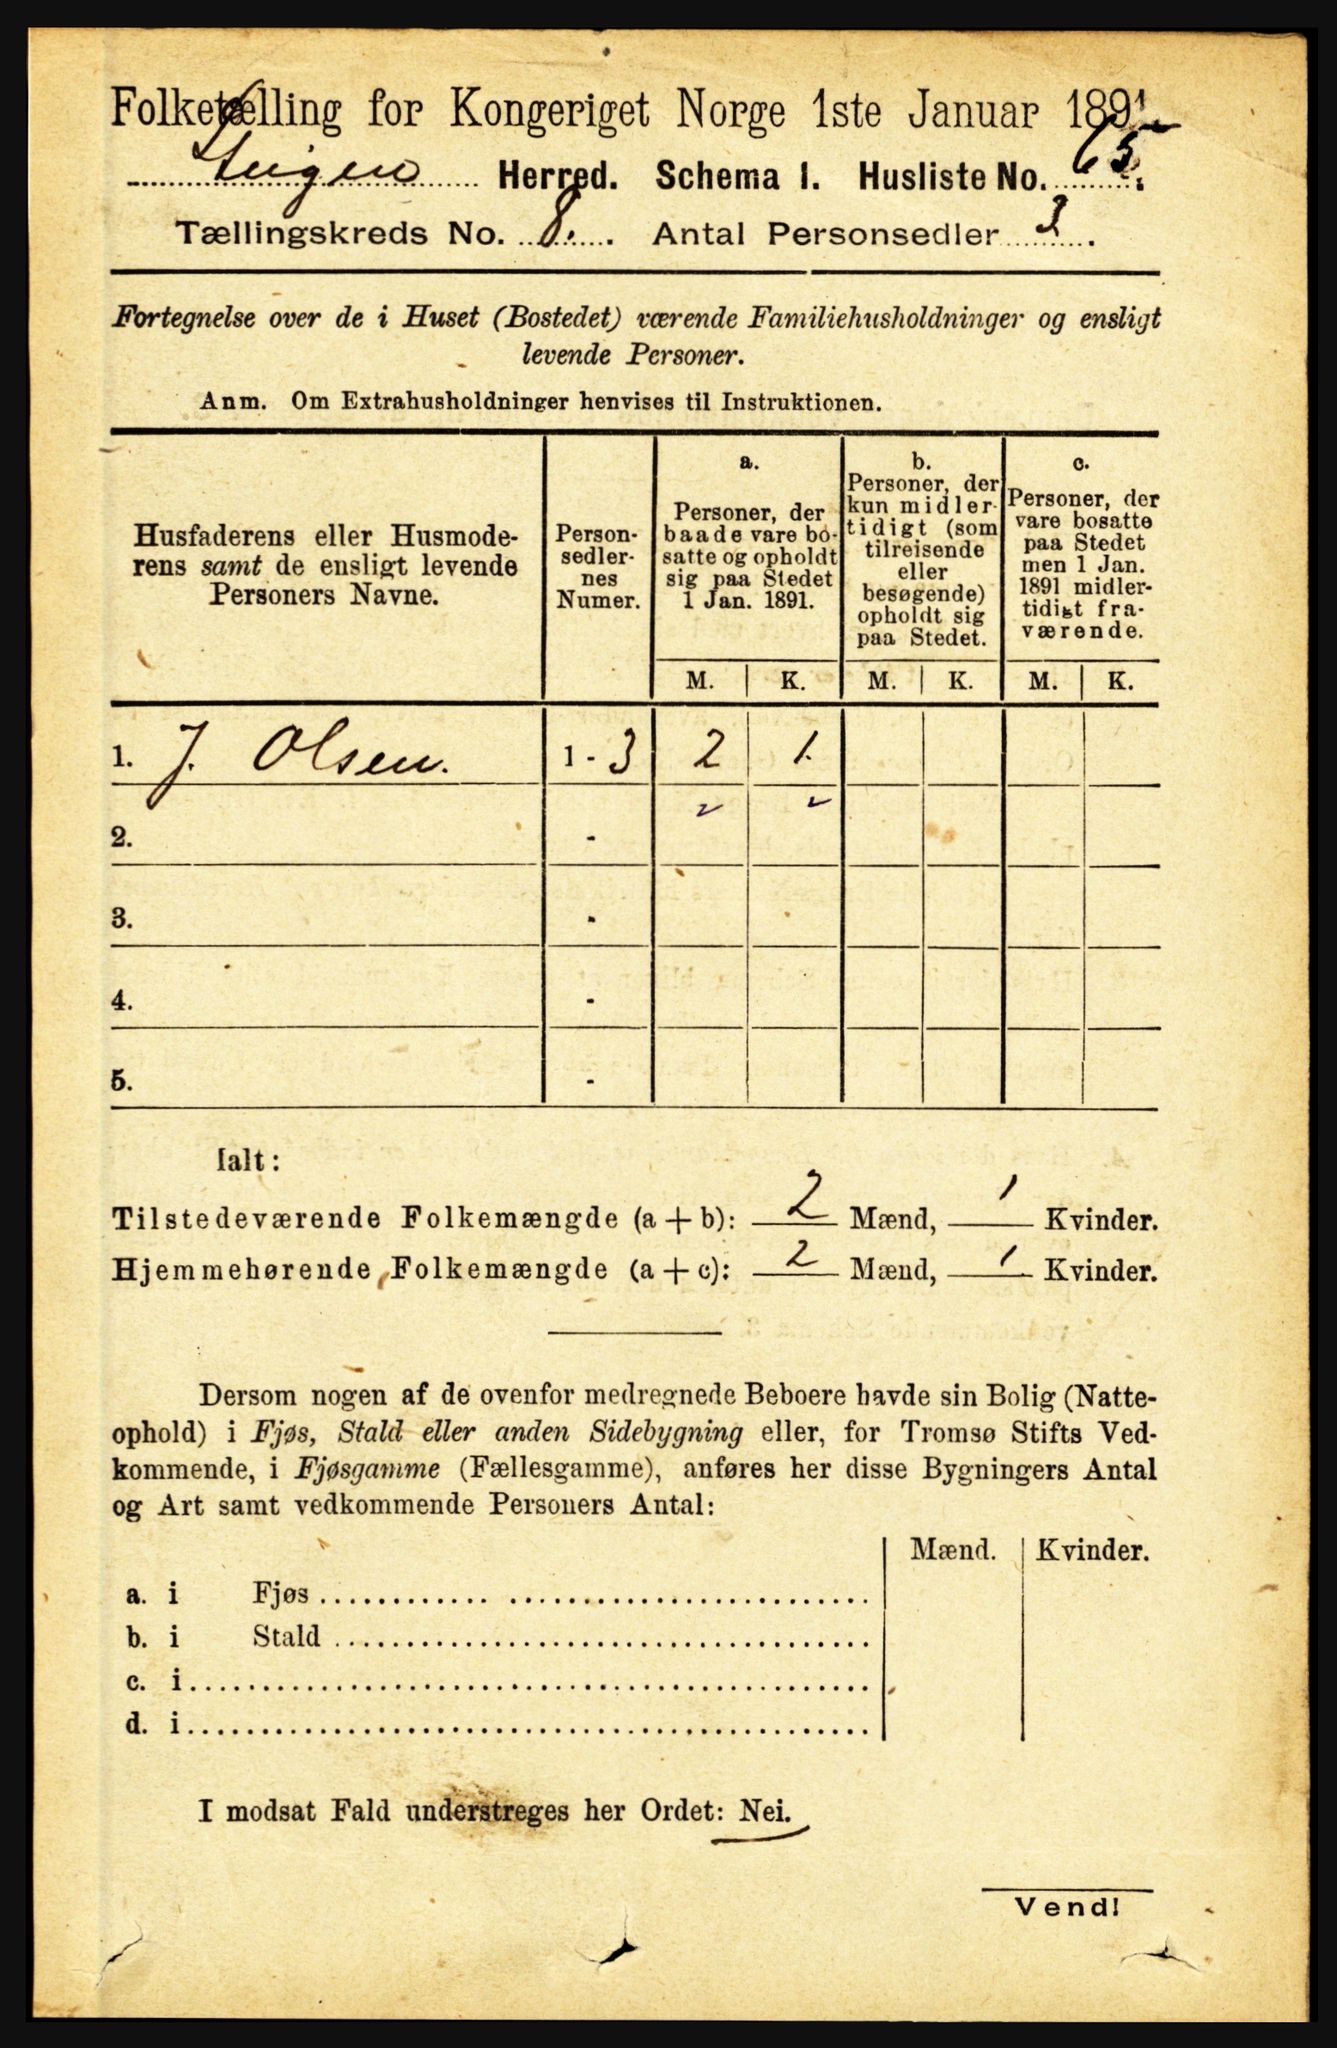 Folketælling for Kongeriget Norge 1ste Januar 1891.
Steigen Herred. Schema 1. Husliste No. 65.
Tællingskreds No. 8. Antal Personsedler 3.
Fortegnelse over de i Huset (Bostedet) værende Familiehusholdninger og ensligt
levende Personer.
Anm. Om Extrahusholdninger henvises til Instruktionen.
Husfaderens eller Husmode-
rens samt de ensligt levende
Personers Navne.
Person-
sedler-
nes
Numer.
a.
Personer, der
baade vare bo-
satte og opholdt
sig paa Stedet
1 Jan. 1891.
b.
Personer, der
kun midler-
tidigt (som
tilreisende
eller
besøgende)
opholdt sig
paa Stedet.
c.
Personer, der
vare bosatte
paa Stedet
men 1 Jan.
1891 midler-
tidigt fra-
værende.
M. K. M. K. M. K.
1. J. Olsen. 1 - 3 2 1.
2. -
3. -
4. -
5. -
Ialt:
Tilstedeværende Folkemængde (a + b): 2 Mænd, 1 Kvinder.
Hjemmehørende Folkemængde (a + c): 2 Mænd, 1 Kvinder.
Dersom nogen af de ovenfor medregnede Beboere havde sin Bolig (Natte-
ophold) i Fjøs, Stald eller anden Sidebygning eller, for Tromsø Stifts Ved-
kommende, i Fjøsgamme (Fællesgamme), anføres her disse Bygningers Antal
og Art samt vedkommende Personers Antal:
Mænd. Kvinder.
a. i Fjøs
b. i Stald
c. i
d. i
I modsat Fald understreges her Ordet: Nei.
Vend!